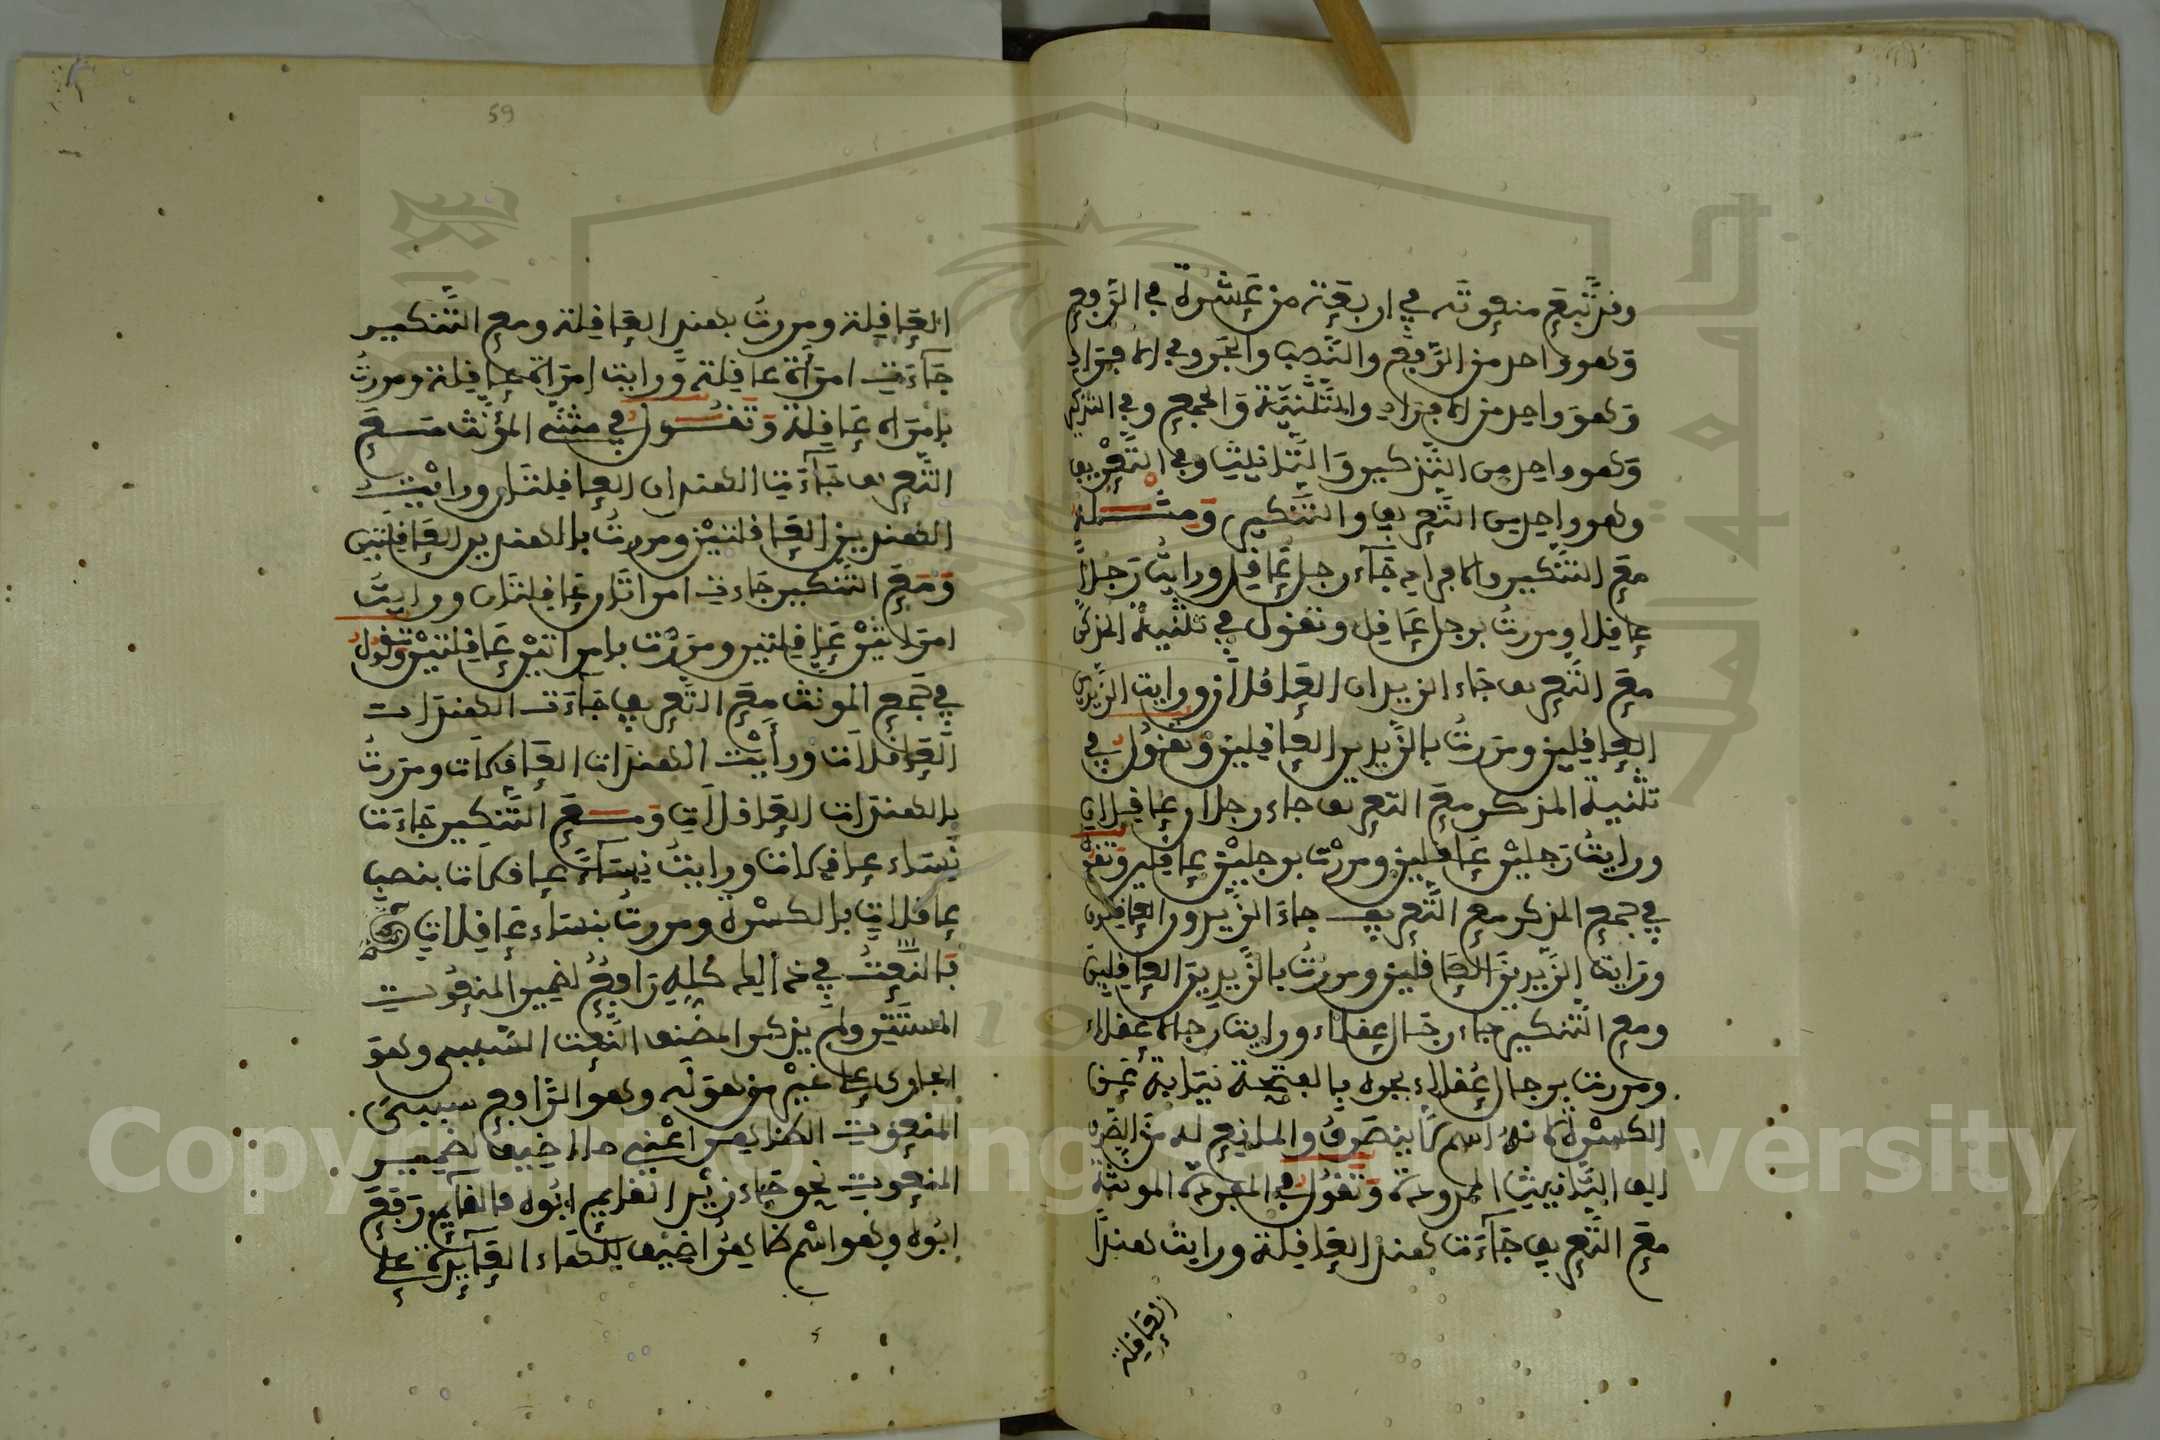 وقد تبع منعوته في اربعة من عشرة في الرفع
وهو واحد من الرفع والنصب والجر وفي الافراد
وهو واحد من الافراد والتثنية والجمع وفي التذكير
وهو واحد من التذكير والتانيث وفي التعريف
وهو واحد من التعريف والتنكير ومثله
مع التنكير والافراد جآء رجل عاقل ورايت رجلا
عاقلا ومررت برجل عاقل وتقول في تثنية المذكر
مع التعريف جاء الزيدان العاقلان ورايت الزيدين
العاقلين ومررت بالزيدين العاقلين وتقول في
تثنية المذكر مع التعريف جاء رجلان عاقلان
ورايت رجلين عاقلين ومررت برجلين عاقلين وتقول
في جمع المذكر مع التعريف جاء الزيدون العاقلون
ورايت الزيدين العاقلين ومررت بالزيدين العاقلين
ومع التنكير جاء رجال عقلاء ورايت رجالا عقلاء
ومررت برجال عقلاء بجره بالفتحة نيابة عن
الكسرة لانه اسم لا ينصرف والمانع له من الصرف
الف التانيث الممدودة وتقول في المفردة المونثة
مع التعريف جآءت هند العاقلة ورايت هندا
العاقلة
59
العاقلة ومررت بهند العاقلة ومع التنكير
جآءت امراة عاقلة ورايت امراة عاقلة ومررت
بامراة عاقلة وتقول في مثنى المؤنث مع
التعريف جآءت الهندان العاقلتان ورايت
الهندين العاقلتين ومررت بالهندين العاقلتين
ومع التنكير جاءت امراتان عاقلتان ورايت
امراتين عاقلتين ومررت بامراتين عاقلتين وتقول
في جمع المونث مع التعريف جآءت الهندات
العاقلات ورأيت الهندات العاقلات ومررت
بالهندات العاقلات ومع التنكير جاءت
نساء عاقلات ورايت نسآء عاقلات بنصب
عاقلات بالكسرة ومررت بنساء عاقلات
فالنعت في هذا كله رافع لضمير المنعوت
المستتر ولم يذكر المصنف النعت السببي وهو
الجاري على غير من هو له وهو الرافع سببي
المنعوت الظاهر اعني ما اضيف لضمير
المنعوت نحو جاء زيد القايم ابوه فالقآيم رفع
ابوه وهو اسم ظاهر اضيف للهاء العآيدة على